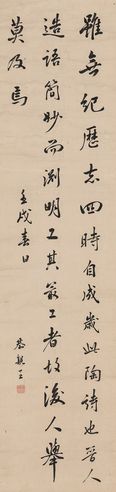 雖無紀歷志四時自成歲此陶詩也晉人
造語簡妙而淵明工其最工者故後人舉
莫及焉
壬戌春日
恭親王